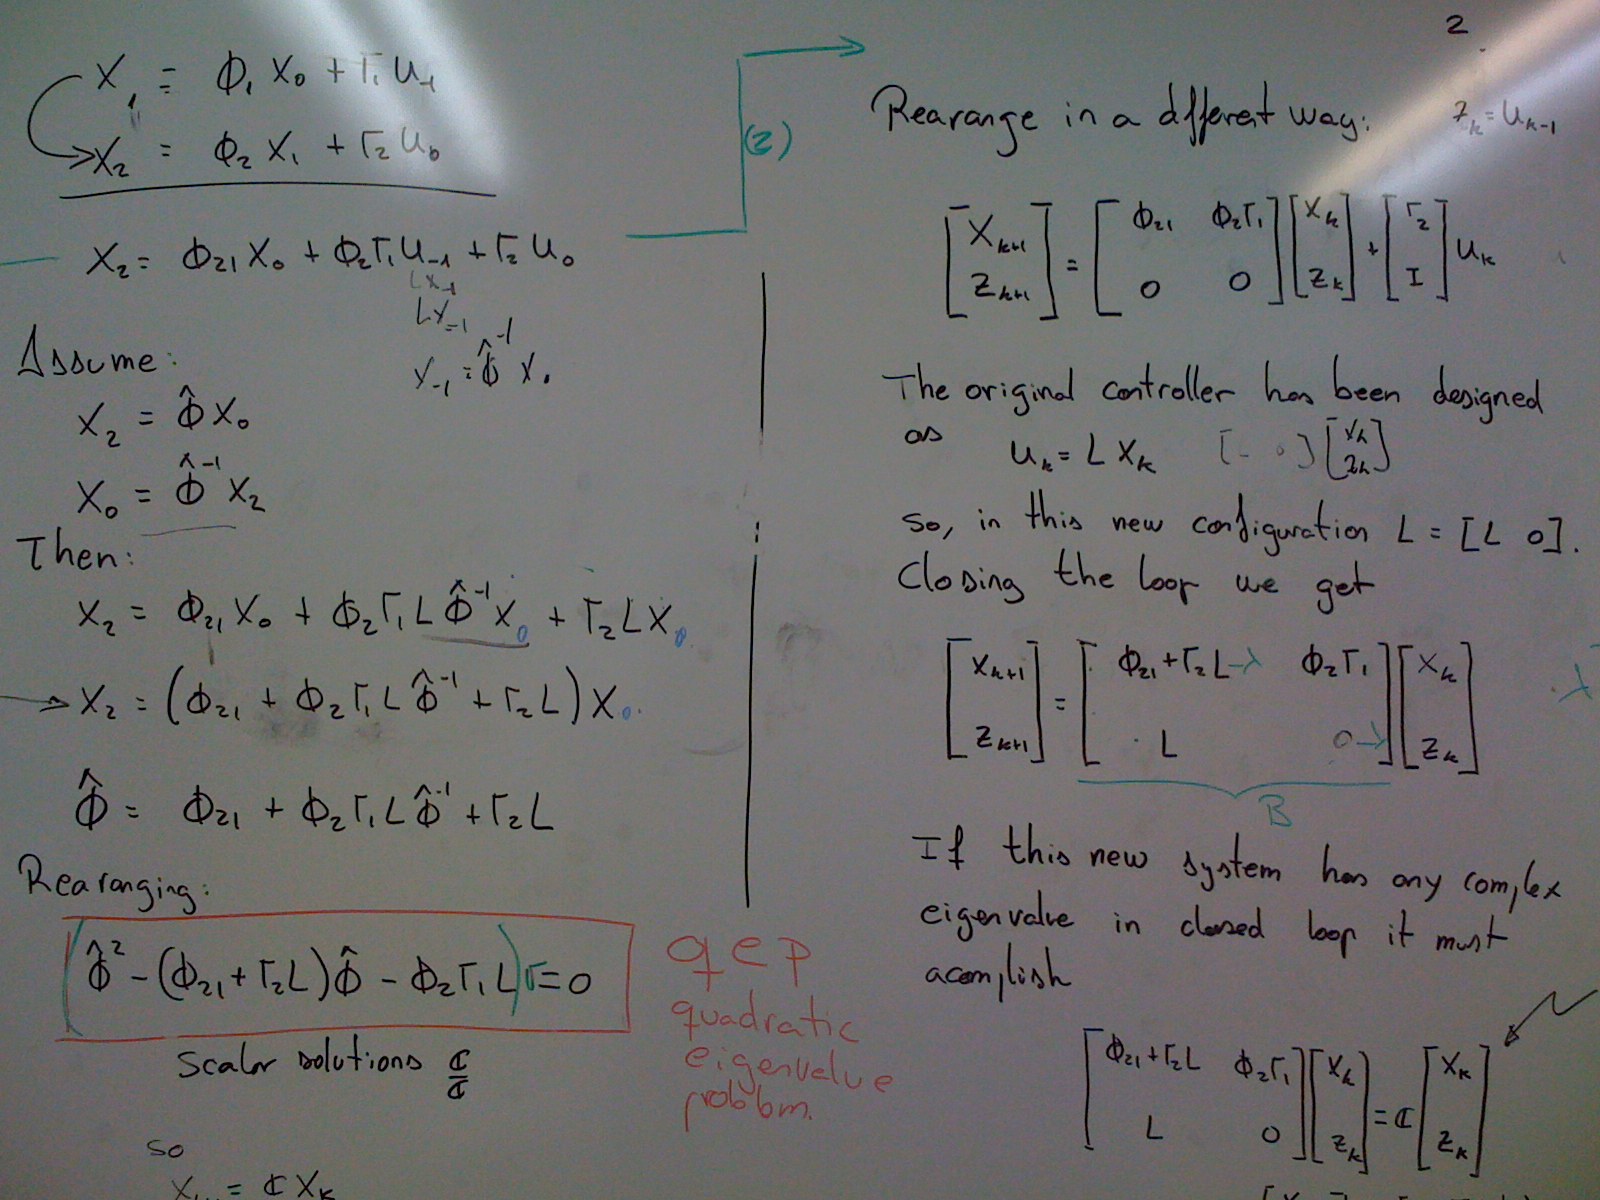 X₁ = Φ₁ X₀ + Γ₁ U₋₁
X₂ = Φ₂ X₁ + Γ₂ U₀
X₂ = Φ₂₁ X₀ + Φ₂Γ₁U₋₁ + Γ₂ U₀
LX₋₁
LX₋₁
X₋₁ = Φ̂⁻¹ X₀
Assume:
X₂ = Φ̂ X₀
X₀ = Φ̂⁻¹ X₂
Then:
X₂ = Φ₂₁ X₀ + Φ₂Γ₁ L Φ̂⁻¹X₀ + Γ₂ L X₀
X₂ = (Φ₂₁ + Φ₂Γ₁ L Φ̂⁻¹ + Γ₂ L) X₀
Φ̂ = Φ₂₁ + Φ₂Γ₁ L Φ̂⁻¹ + Γ₂ L
Rearanging:
(Φ̂² - (Φ₂₁ + Γ₂L)Φ̂ - Φ₂Γ₁ L) = 0
qep
quadratic
eigenvalue
problem.
scalar solutions ℂ
ℂ
so
= ℂ Xₖ
(2)
2
Rearange in a different way:
Zₖ = Uₖ₋₁
[Xₖ₊₁ Zₖ₊₁] = [Φ₂₁ Φ₂Γ₁ 0 0] [Xₖ Zₖ] + [Γ₂ I] Uₖ
The original controller has been designed
as Uₖ = L Xₖ [- 0] [Xₖ Zₖ]
so, in this new configuration L = [L 0].
Closing the loop we get
[Xₖ₊₁ Zₖ₊₁] = [Φ₂₁ + Γ₂ L -λ Φ₂Γ₁ L 0 -λ] [Xₖ Zₖ]
λ
B
If this new system has any complex
eigenvalue in closed loop it must
acomplish
[Φ₂₁ + Γ₂ L Φ₂Γ₁ L 0] [Xₖ Zₖ] = ℂ [Xₖ Zₖ]